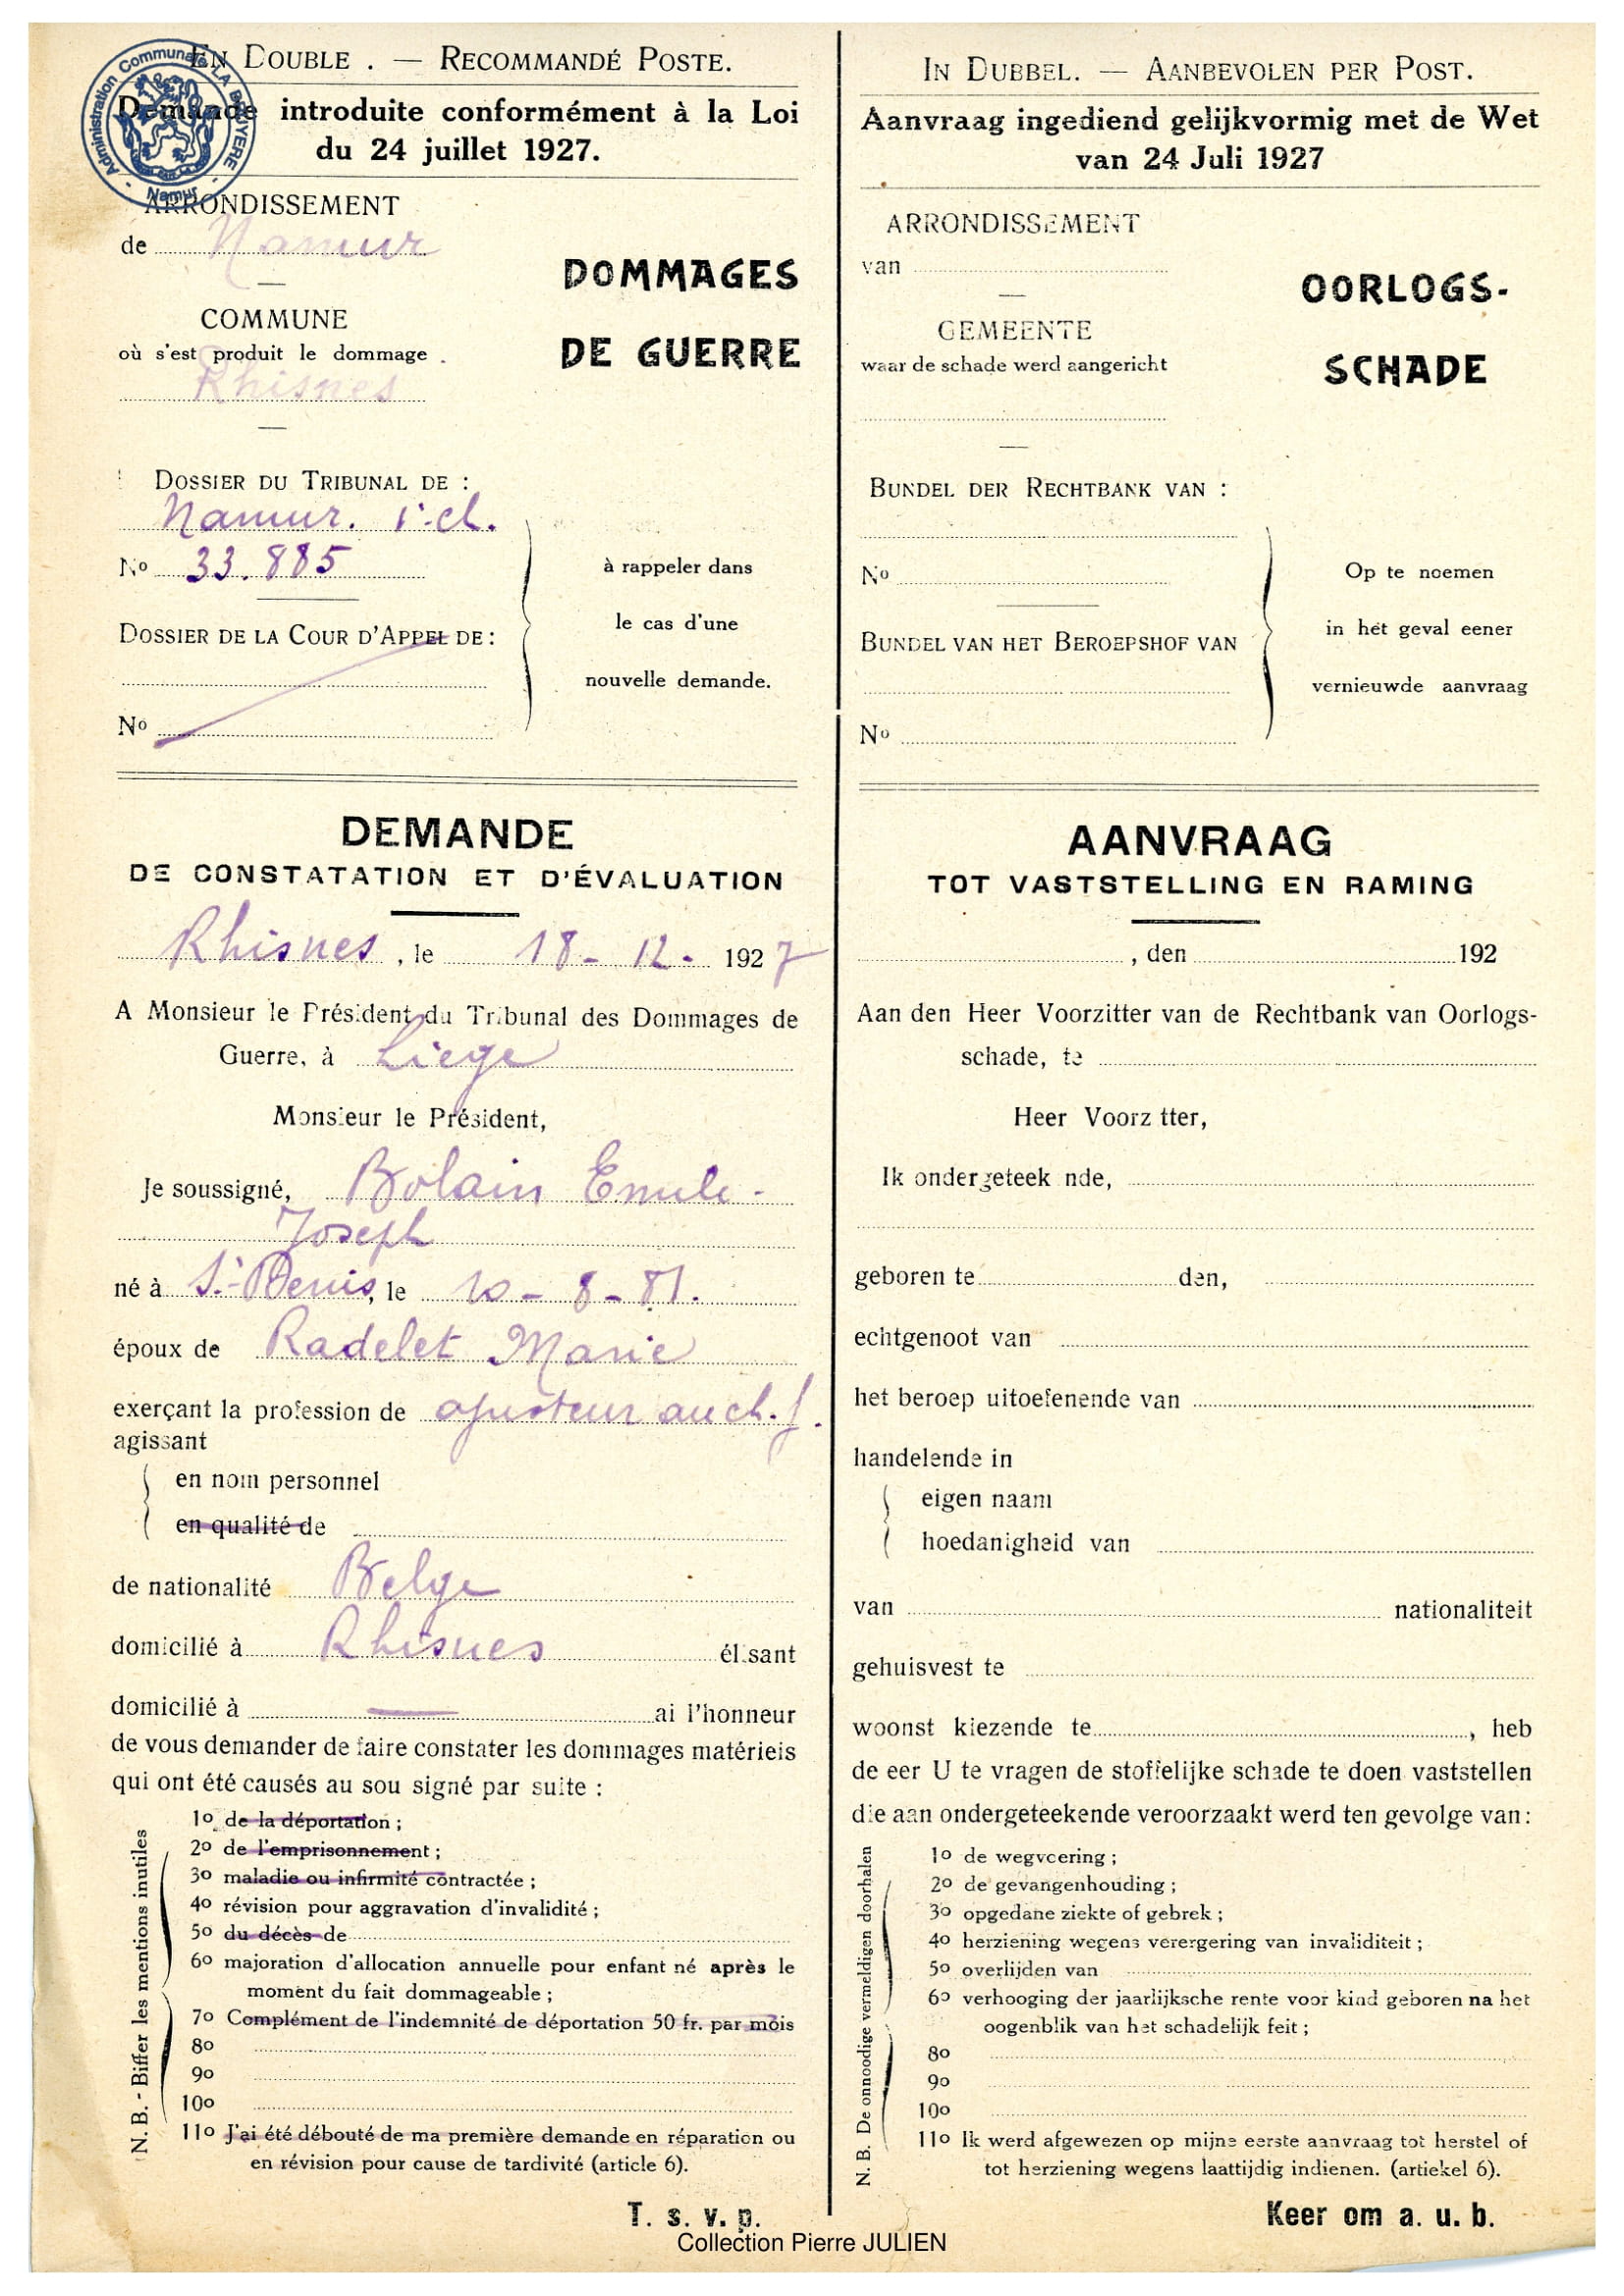 EN DOUBLE . — RECOMMANDÉ POSTE.
Demande introduite conformément à la Loi
du 24 juillet 1927.
Administration Communale LA BRUYERE
- Namur -
ARRONDISSEMENT
de Namur
COMMUNE
où s'est produit le dommage .
Rhisnes
DOMMAGES
DE GUERRE
DOSSIER DU TRIBUNAL DE :
Namur. 1e ch.
No 33.885
DOSSIER DE LA COUR D'APPEL DE :
No
à rappeler dans
le cas d'une
nouvelle demande.
DEMANDE
DE CONSTATATION ET D'ÉVALUATION
Rhisnes, le 18 - 12 - 1927
A Monsieur le Président du Tribunal des Dommages de
Guerre, à Liège
Monsieur le Président,
Je soussigné, Bolain Emile -
Joseph
né à St-Denis, le 10 - 8 - 81.
époux de Radelet Marie
exerçant la profession de ajusteur au ch. f.
agissant
en nom personnel
en qualité de
de nationalité Belge
domicilié à Rhisnes élisant
domicilié à — ai l'honneur
de vous demander de faire constater les dommages matériels
qui ont été causés au sou signé par suite :
N. B. - Biffer les mentions inutiles
1o de la déportation ;
2o de l'emprisonnement ;
3o maladie ou infirmité contractée ;
4o révision pour aggravation d'invalidité ;
5o du décès de
6o majoration d'allocation annuelle pour enfant né après le
moment du fait dommageable ;
7o Complément de l'indemnité de déportation 50 fr. par mois
8o
9o
10o
11o J'ai été débouté de ma première demande en réparation ou
en révision pour cause de tardivité (article 6).
T. s. v. p.
IN DUBBEL. — AANBEVOLEN PER POST.
Aanvraag ingediend gelijkvormig met de Wet
van 24 Juli 1927
ARRONDISSEMENT
van
GEMEENTE
waar de schade werd aangericht
OORLOGS-
SCHADE
BUNDEL DER RECHTBANK VAN :
No
BUNDEL VAN HET BEROEPSHOF VAN
No
Op te noemen
in het geval eener
vernieuwde aanvraag
AANVRAAG
TOT VASTSTELLING EN RAMING
, den 192
Aan den Heer Voorzitter van de Rechtbank van Oorlogs-
schade, te
Heer Voorz tter,
Ik ondergeteek nde,
geboren te den,
echtgenoot van
het beroep uitoefenende van
handelende in
eigen naam
hoedanigheid van
van nationaliteit
gehuisvest te
woonst kiezende te , heb
de eer U te vragen de stoffelijke schade te doen vaststellen
die aan ondergeteekende veroorzaakt werd ten gevolge van :
N. B. De onnoodige vermeldigen doorhalen
1o de wegvoering ;
2o de gevangenhouding ;
3o opgedane ziekte of gebrek ;
4o herziening wegens verergering van invaliditeit ;
5o overlijden van
6o verhooging der jaarlijksche rente voor kind geboren na het
oogenblik van het schadelijk feit ;
8o
9o
10o
11o Ik werd afgewezen op mijne eerste aanvraag tot herstel of
tot herziening wegens laattijdig indienen. (artiekel 6).
Keer om a. u. b.
Collection Pierre JULIEN